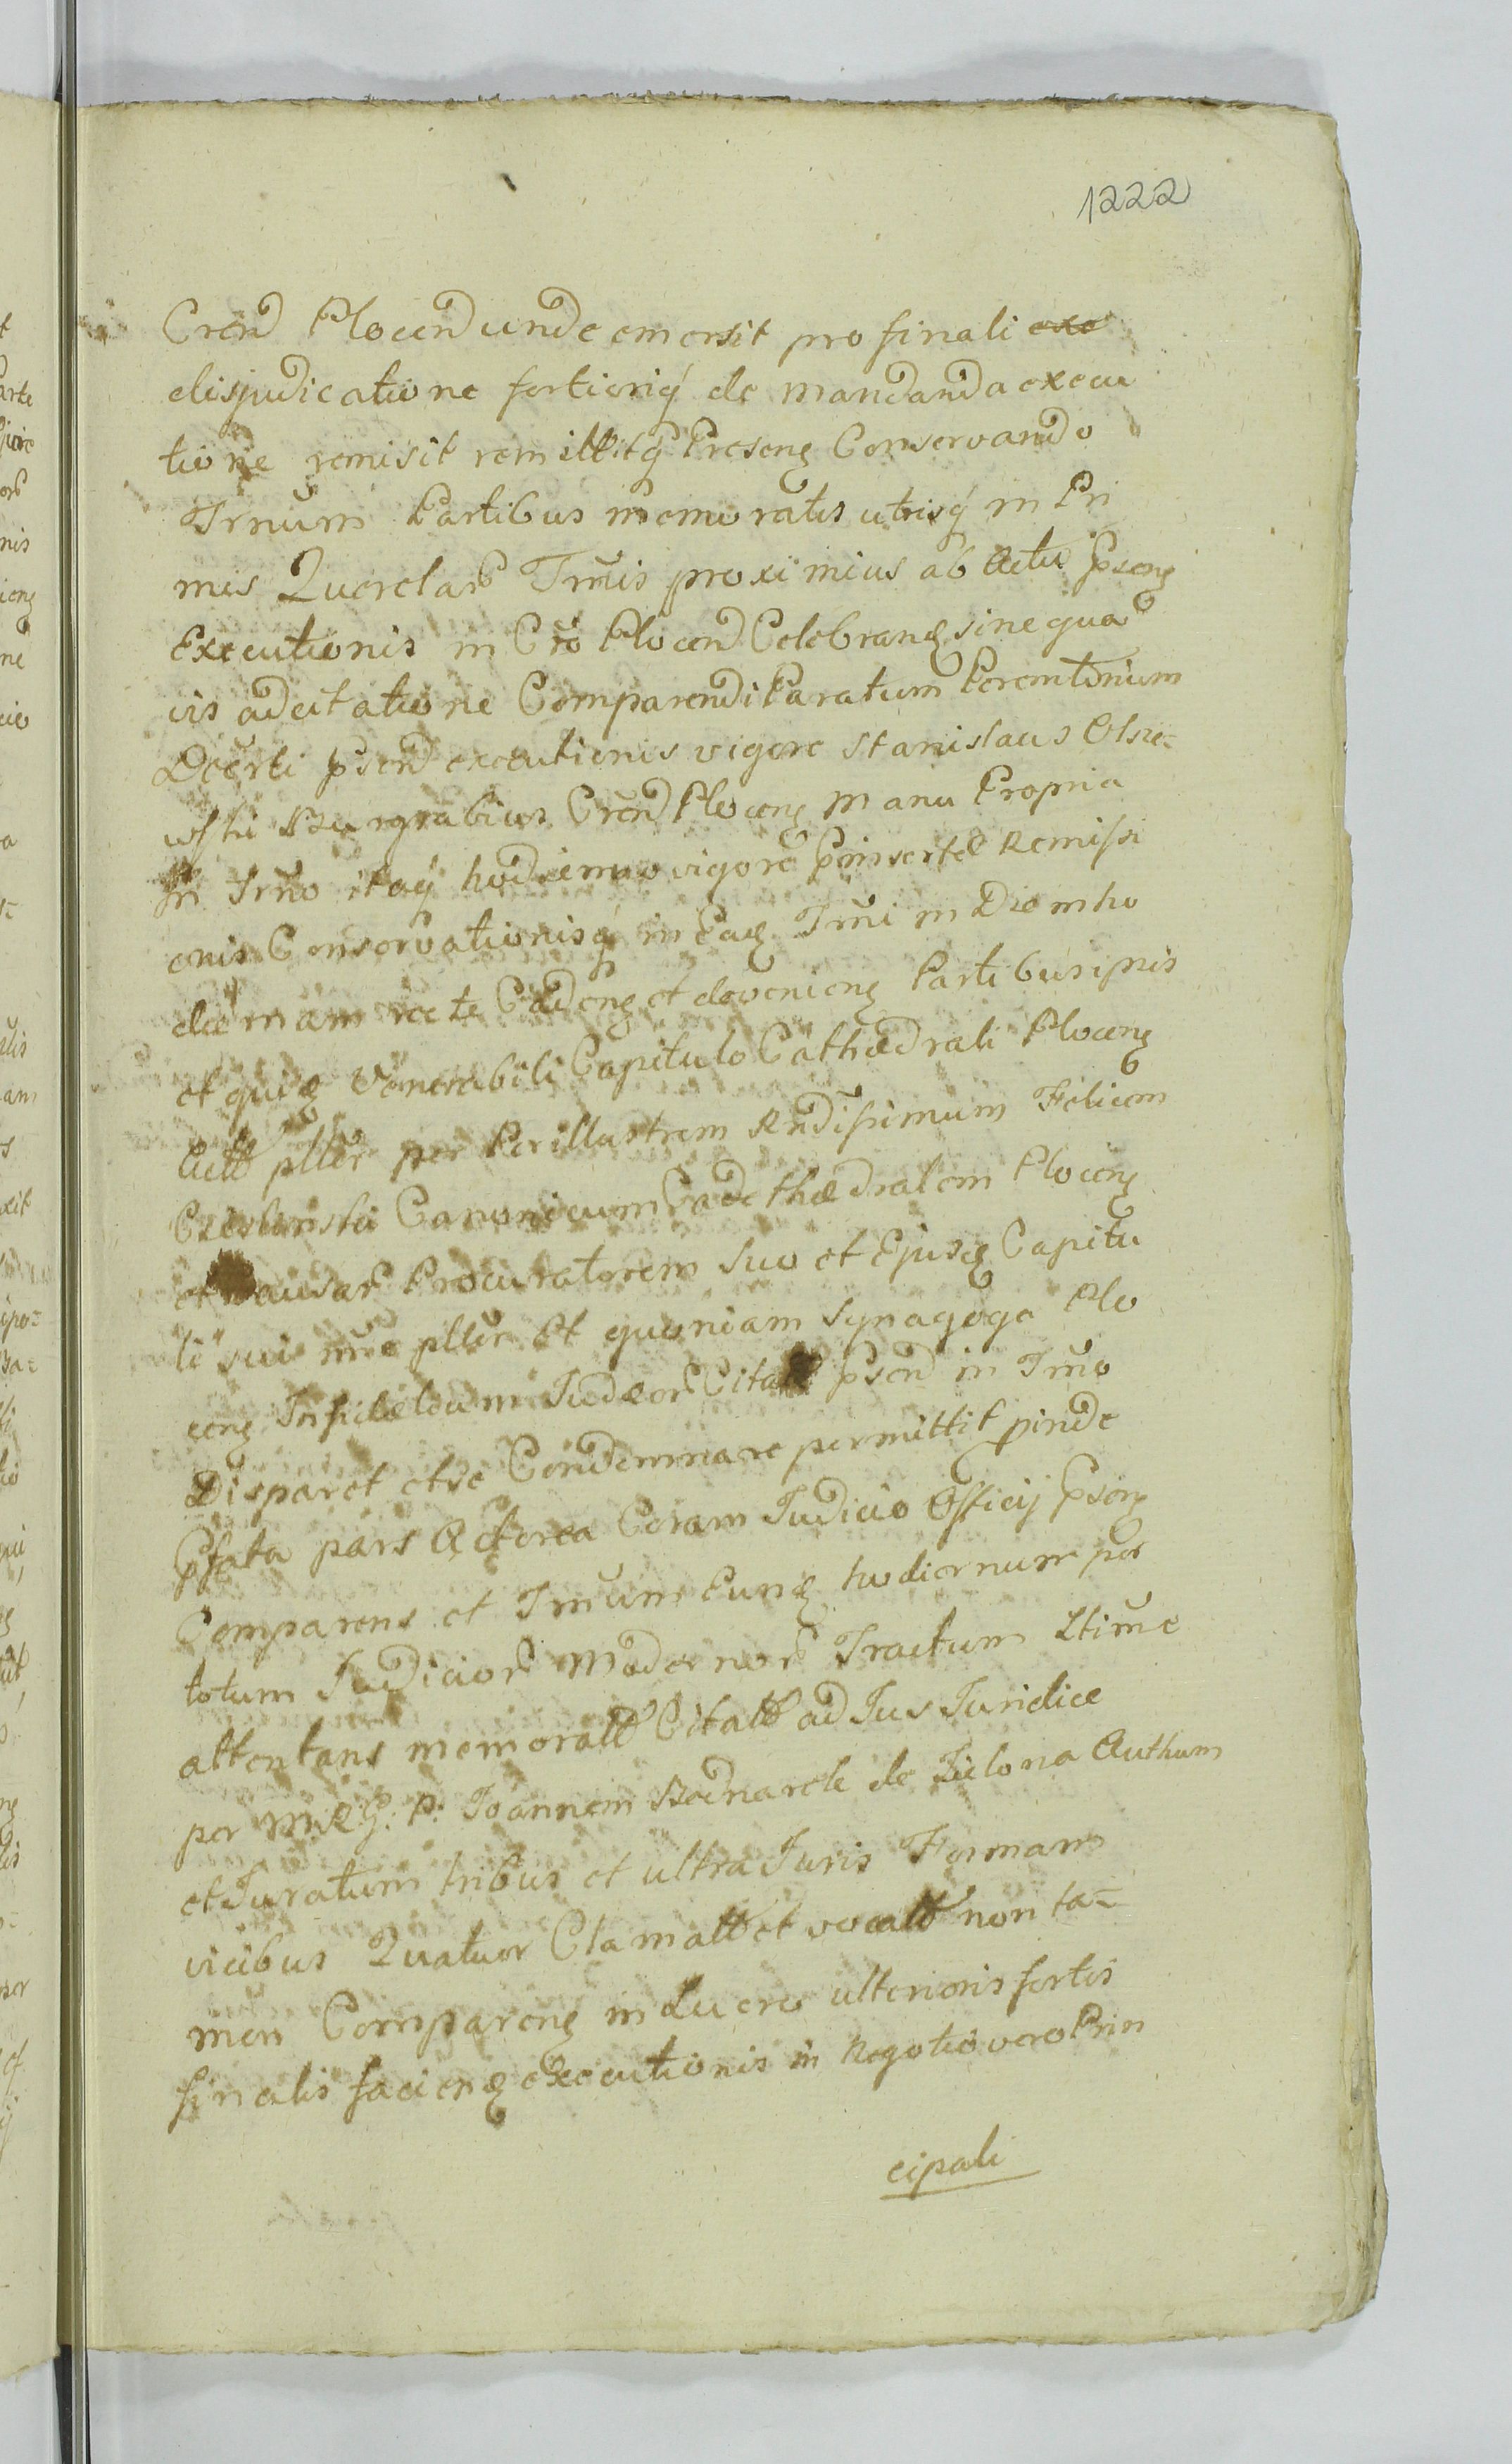 1222
Crend Plocen unde emersit pro finali exe
disjudicatione fortioriq de mandanda execu
tione remisit remittitq Presens Conservando
Trnum Partibus memoratis utrisq in Pri
mis Querelar Trmis proximius ab Actu Psens
Executionis in Cro Plocen Celebrans sine qua
vis adcitatione Comparendi Paratum Peremtorium
Decrti psend executionis vigore Stanislaus Olsze-
wski Burgrabius Crend Plocens Manu Propria
In Trno itaq hodierno vigore Pinsertae Remissi
onis Conservationisq in Eaq Trmi in Diem ho
diernam recte Cadens et deveniens Partibus ipsis
et quidem Venerabili Capitulo Cathedrali Plocens
Actt plltr per Perillustrem Rndissimum Felicem
Canonicum Cathaedralem Plocens
et Causar Procuratorem suo et Ejusq Capitu
li sui nne plltr Et quoniam Synagoga Plo
cens Infidelium Judaeor Citatt Psend in Trno
Disparet et se Condemnare permittit pinde
Psata pars Actorea Coram Judicio Officij Psens
Comparens et Trnum Eunq hodiernum per
totum Judicior Modernor Tractum Ltime
attentans memoratt Citatt ad Jus Juridice
per Joannem Bednarek de Zielona Authum
et Juratum tribus et ultra Juris Formam
vicibus Quatuor Clamatt et vocatt non ta-
men Comparens in Lucro ulterioris fortis
finalis faciens executionis in Negotio vero Prin
cipali